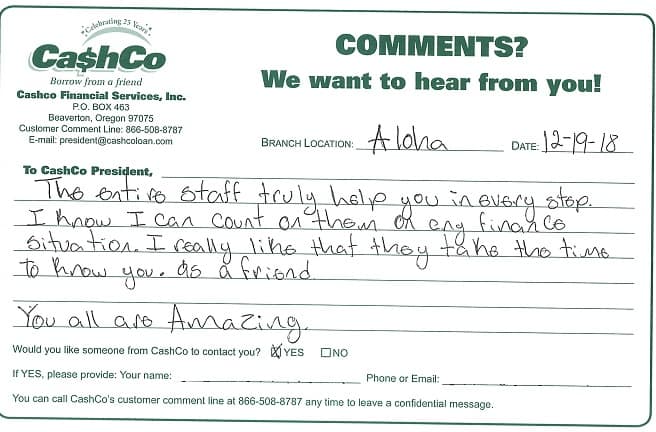 Celebrating 25 Years
Ca$hCo
Borrow from a friend
Cashco Financial Services, Inc.
P.O. BOX 463
Beaverton, Oregon 97075
Customer Comment Line: 866-508-8787
E-mail: president@cashcoloan.com
COMMENTS?
We want to hear from you!
BRANCH LOCATION: Aloha DATE: 12-19-18
To CashCo President,
The entire staff truly help you in every step.
I know I can count on them on any finance
situation. I really like that they take the time
to know you. as a friend
You all are Amazing.
Would you like someone from CashCo to contact you? ☒ YES ☐ NO
If YES, please provide: Your name: Phone or Email:
You can call CashCo's customer comment line at 866-508-8787 any time to leave a confidential message.